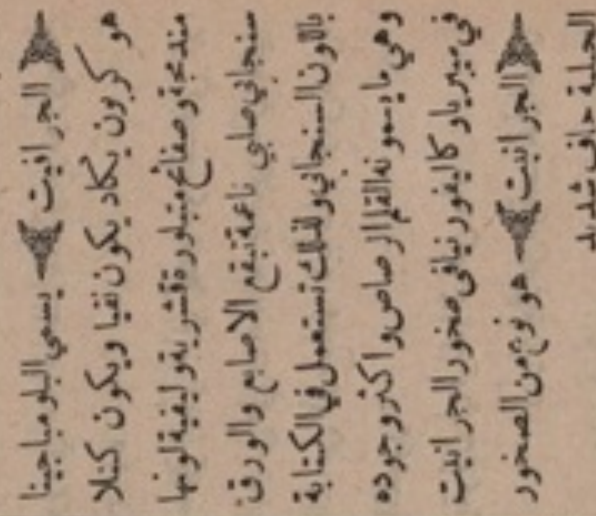 ﴿ الجرافيت ﴾ يسمي البلومباجينا
هو كربون يكاد يكون نقيا ويكون كتلا
مندمجة وصفائح متبلورة قشرية وليفية لونها
سنجابي صلبي ناعمة تبقع الاصابع والورق
باللون السنجابي ولذلك تستعمل في الكتابة
وهي ما يسمونه القلم الرصاص واكثر وجوده
في سيبريا وكاليفورنيا في صخور الجرانيت
﴿ الجرانيت ﴾ هو نوع من الصخور
جاف شديد